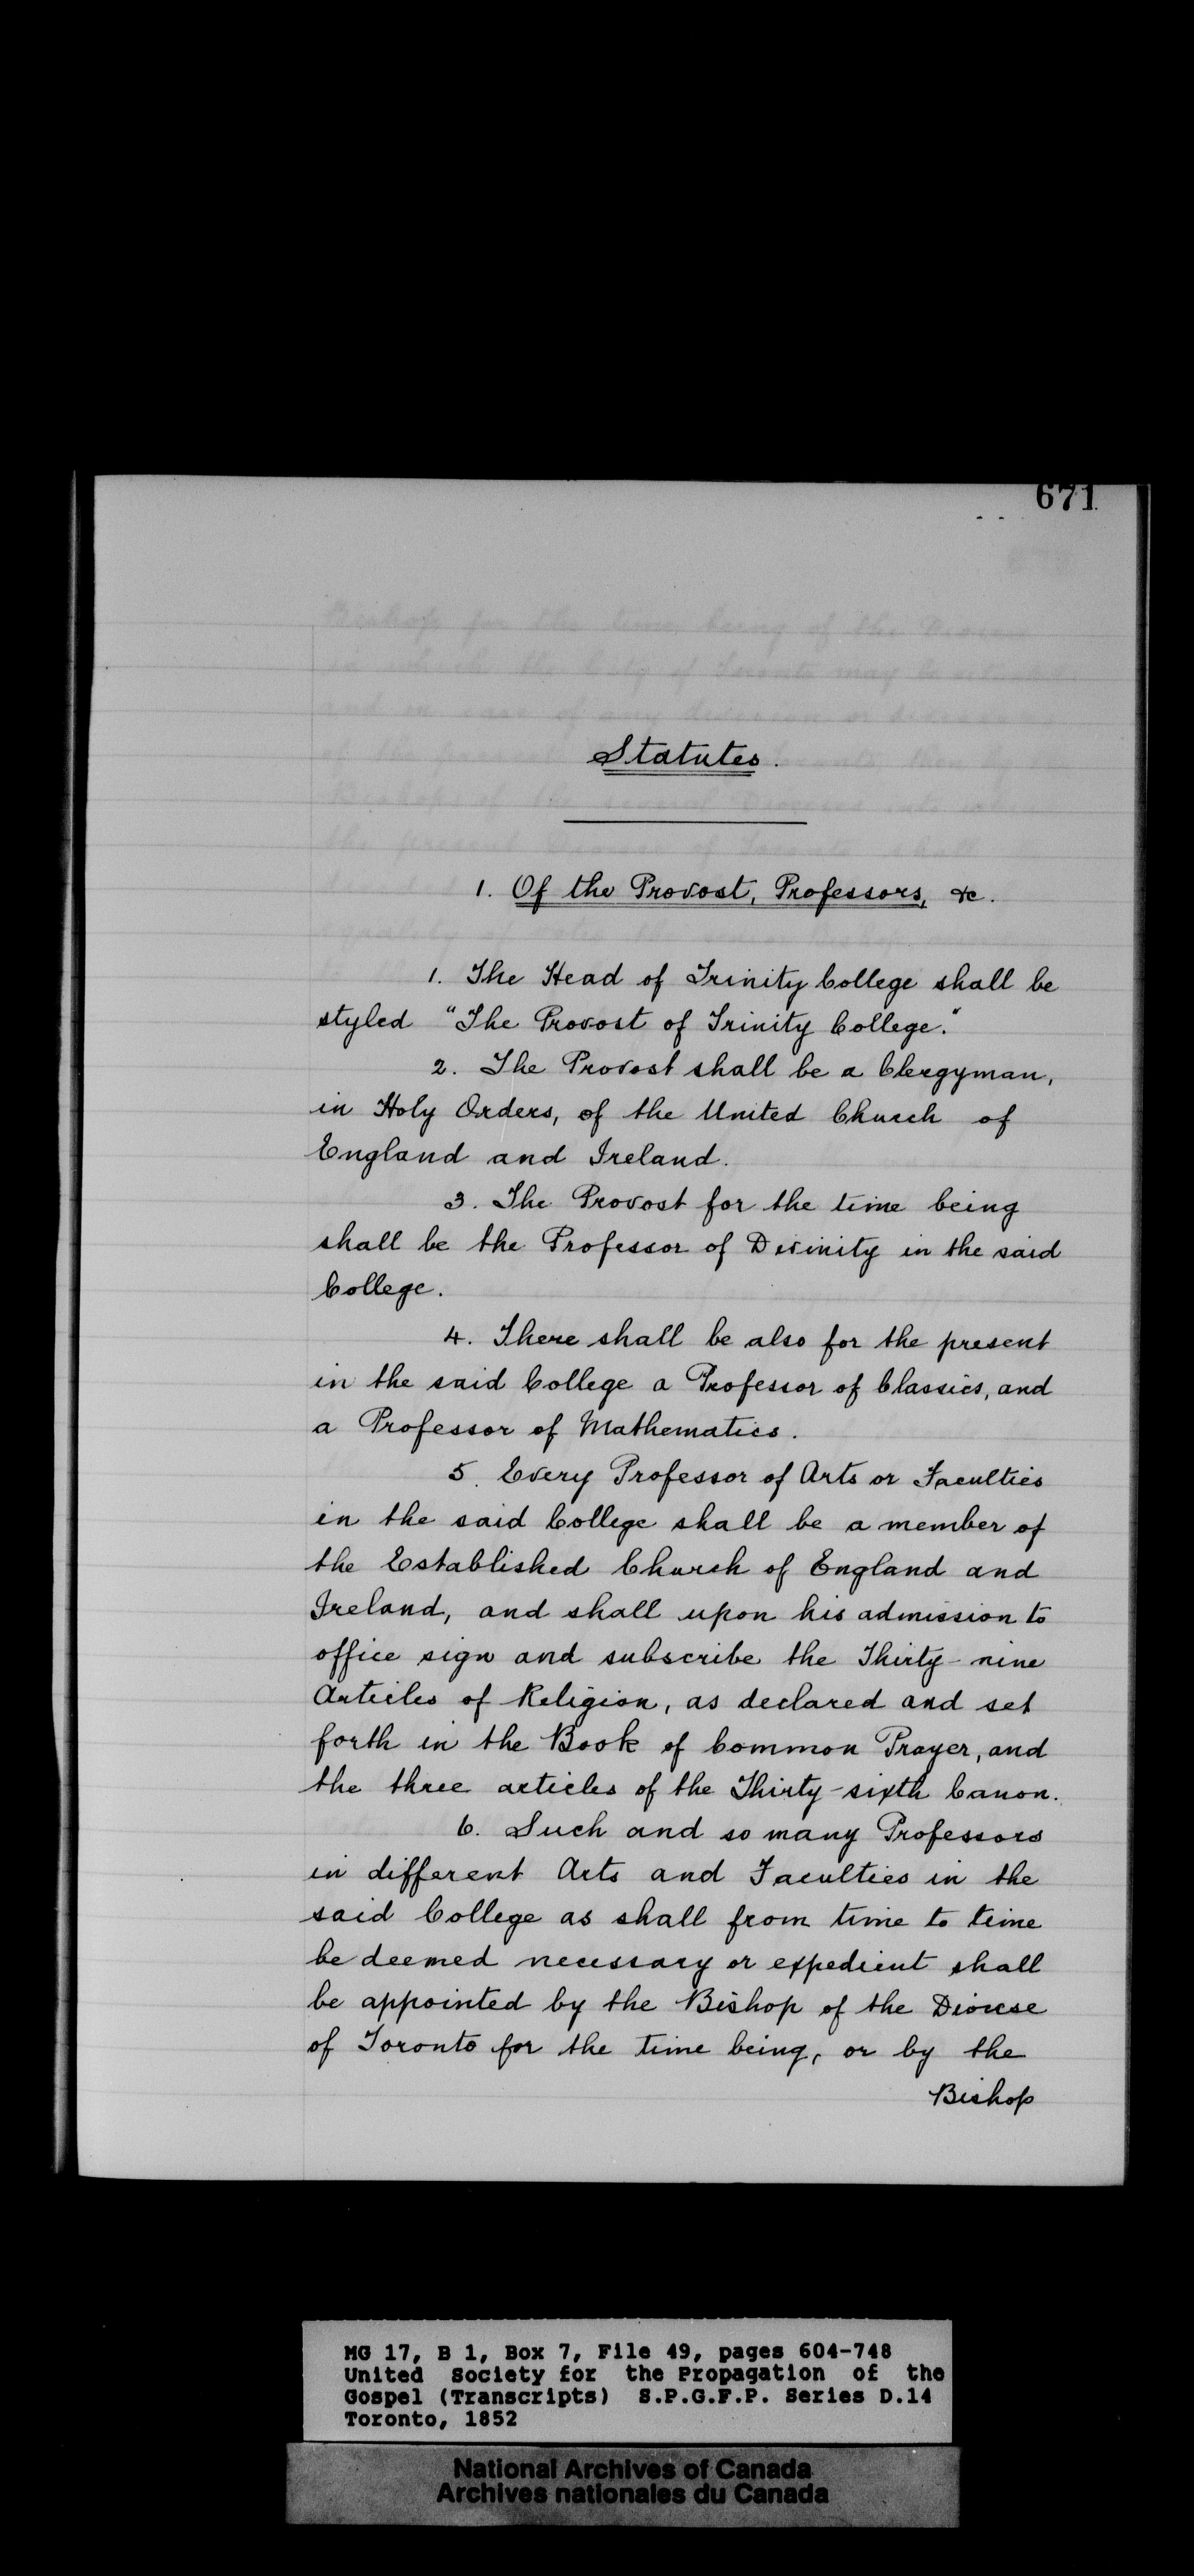 671
Statutes.
1. Of the Provost, Professors, &c.
1. The Head of Trinity College shall be
styled "The Provost of Trinity College."
2. The Provost shall be a Clergyman,
in Holy Orders, of the United Church of
England and Ireland.
3. The Provost for the time being
shall be the Professor of Divinity in the said
College.
4. There shall be also for the present
in the said College a Professor of Classics, and
a Professor of Mathematics.
5. Every Professor of Arts or Faculties
in the said College shall be a member of
the Established Church of England and
Ireland, and shall upon his admission to
office sign and subscribe the Thirty-nine
Articles of Religion, as declared and set
forth in the Book of Common Prayer, and
the three articles of the Thirty-sixth Canon.
6. Such and so many Professors
in different Arts and Faculties in the
said College as shall from time to time
be deemed necessary or expedient shall
be appointed by the Bishop of the Diocese
of Toronto for the time being, or by the
Bishop
MG 17, B 1, Box 7, File 49, pages 604-748
United Society for the Propagation of the
Gospel (Transcripts) S.P.G.F.P. Series D.14
Toronto, 1852
National Archives of Canada
Archives nationales du Canada